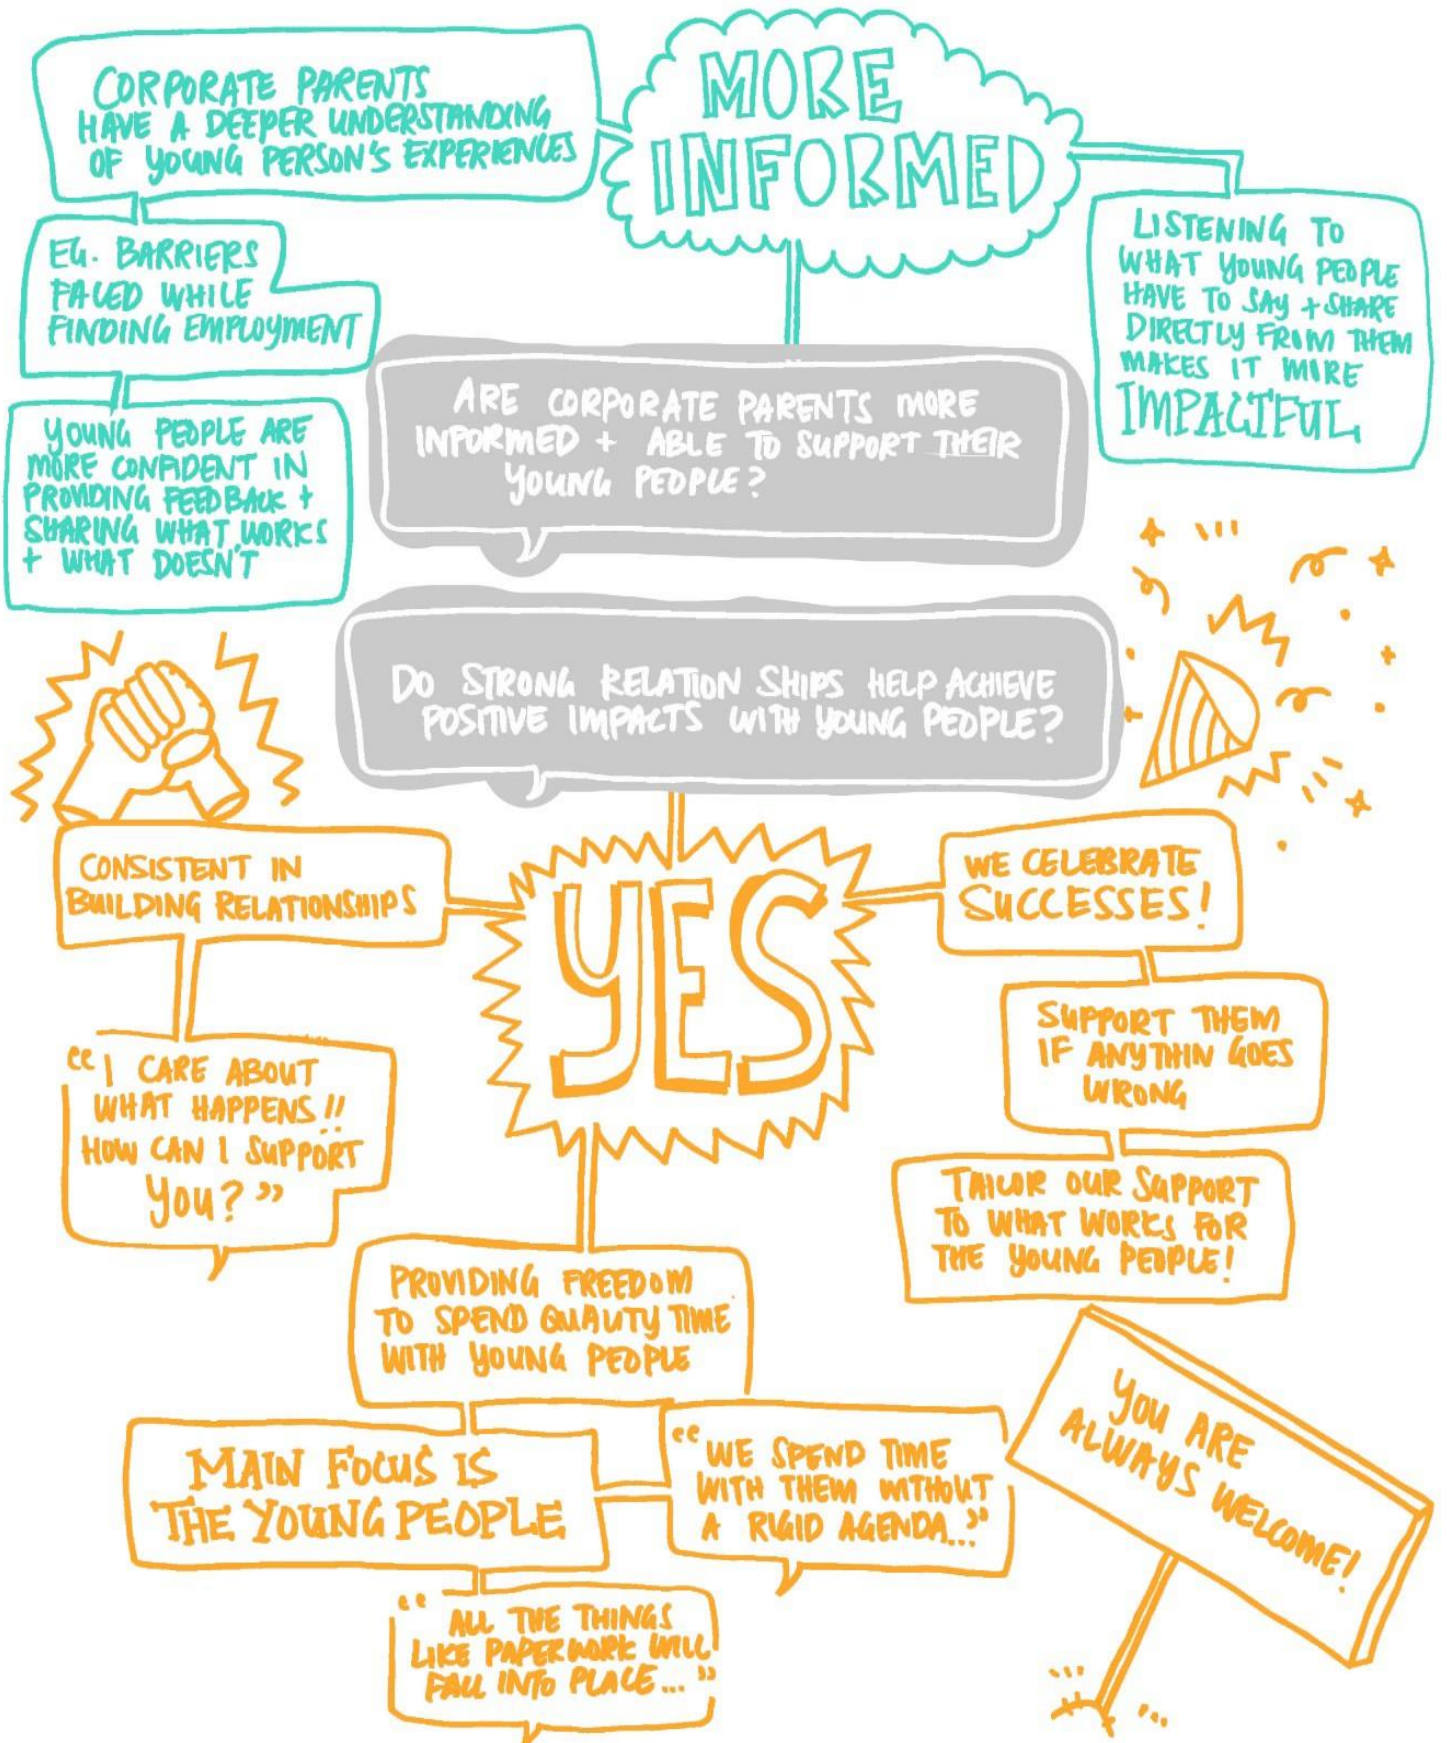 MORE
INFORMED
CORPORATE PARENTS
HAVE A DEEPER UNDERSTANDING
OF YOUNG PERSON'S EXPERIENCES
EG. BARRIERS
FACED WHILE
FINDING EMPLOYMENT
YOUNG PEOPLE ARE
MORE CONFIDENT IN
PROVIDING FEEDBACK +
SHARING WHAT WORKS
+ WHAT DOESN'T
LISTENING TO
WHAT YOUNG PEOPLE
HAVE TO SAY + SHARE
DIRECTLY FROM THEM
MAKES IT MORE
IMPACTFUL
ARE CORPORATE PARENTS MORE
INFORMED + ABLE TO SUPPORT THEIR
YOUNG PEOPLE?
DO STRONG RELATION SHIPS HELP ACHIEVE
POSITIVE IMPACTS WITH YOUNG PEOPLE?
YES
CONSISTENT IN
BUILDING RELATIONSHIPS
"I CARE ABOUT
WHAT HAPPENS!!
HOW CAN I SUPPORT
YOU?"
WE CELEBRATE
SUCCESSES!
SUPPORT THEM
IF ANYTHIN GOES
WRONG
TAILOR OUR SUPPORT
TO WHAT WORKS FOR
THE YOUNG PEOPLE!
PROVIDING FREEDOM
TO SPEND QUALITY TIME
WITH YOUNG PEOPLE
MAIN FOCUS IS
THE YOUNG PEOPLE
"WE SPEND TIME
WITH THEM WITHOUT
A RIGID AGENDA..."
"ALL THE THINGS
LIKE PAPERWORK WILL
FALL INTO PLACE..."
YOU ARE
ALWAYS WELCOME!